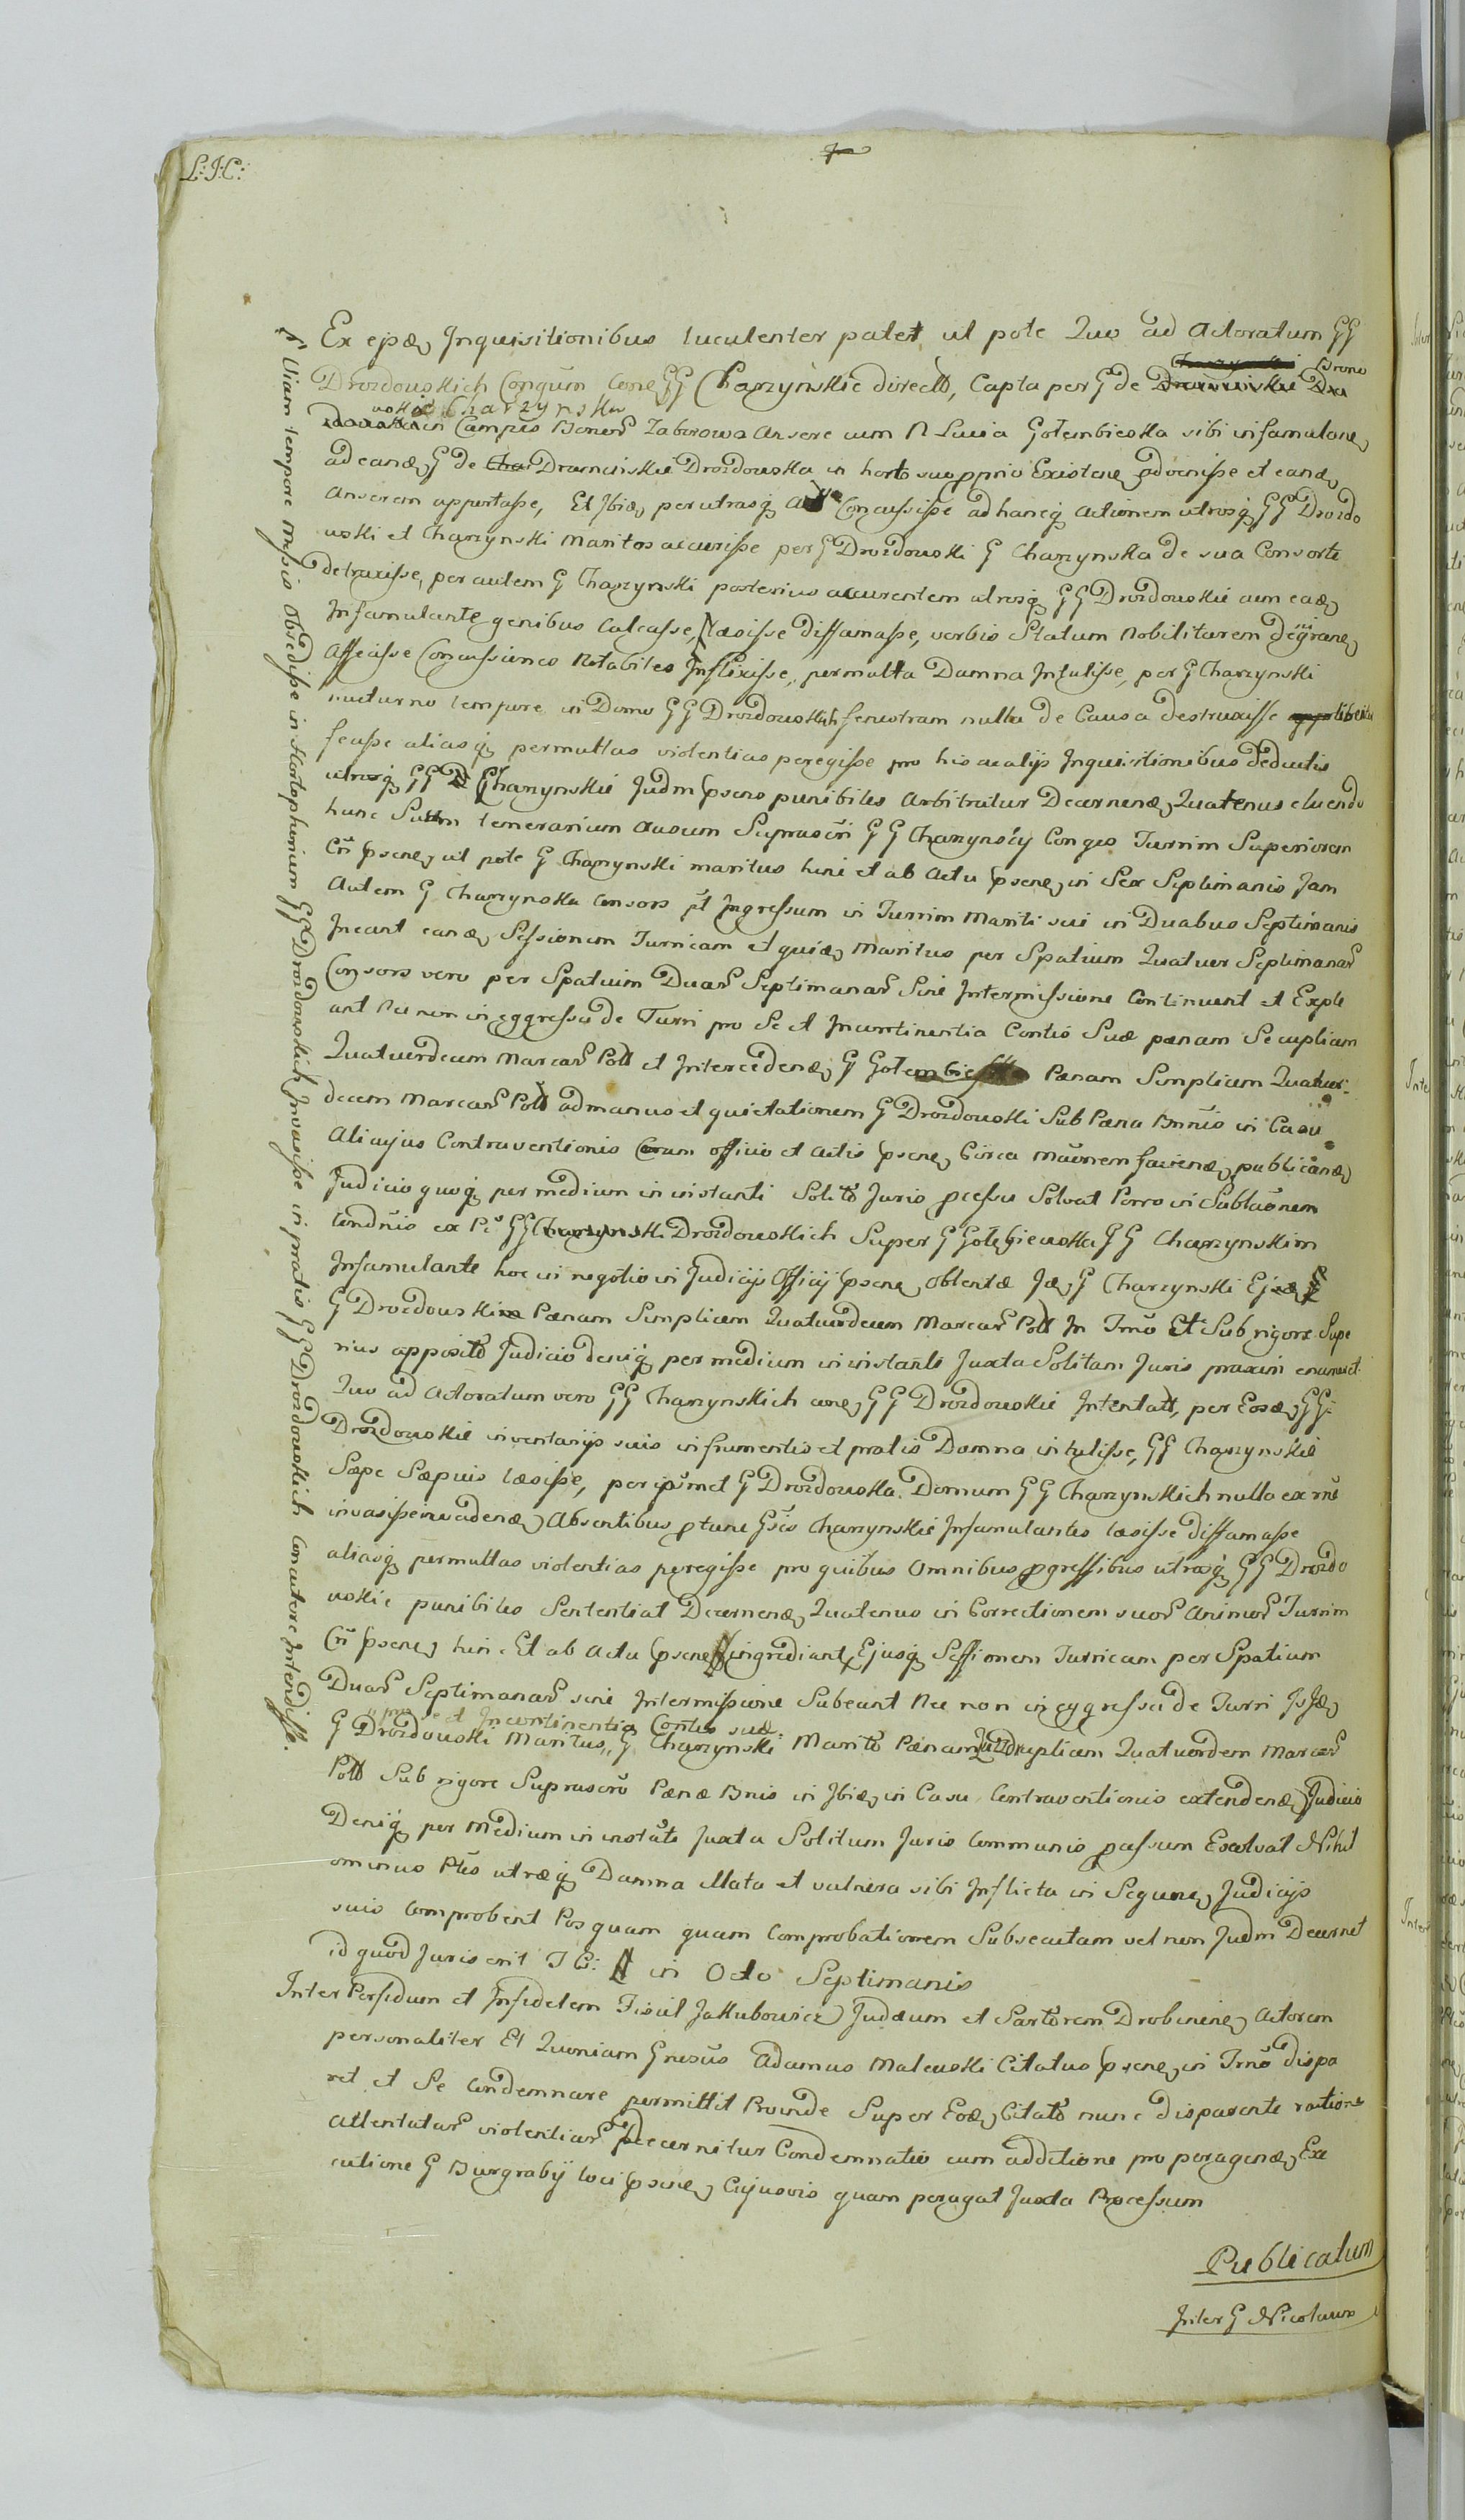 L: J: C:
Ex ejsdem Inquisitionibus luculenter patet ut pote Quo ad Actoratum GG
Drozdowskich Congum cone GG Charzynskie directt, Capta per G de
wskie Charzynska
in Campis Bonor Zaborowo Ansere cum N Lucia Gołembieska sibi infamulane
ad eande G de Dramińskie Drozdowska in horto suo pprio Existene advenisse et eande
Anserem apportasse, Et Ibide per utrasq Concussisse ad hancq Actionem utrosq GG Drozdo
wski et Charzynski Maritos accurisse per G Drozdowski G Charzynska de sua Consorte
detraxisse, per autem G Charzynski posterius accurentem utrosq GG Drozdowskie cum eade
Infamulante genibus Calcasse, læsisse diffamasse, verbis Statum Nobilitarem
Affecisse Concussiones Notabiles Inflixisse, permulta Damna Intulisse, per G Charzynski
nocturno tempore in Domo GG Drozdowskich fenestram nulla de Causa destruxisse
fecisse aliasq permultas violentias peregisse pro his ac alijs Inquisitionibus deductis
utrosq GG Charzynskie Judm psens punibiles Arbitratur Decernend, Quatenus eluendo
hunc Suum temerarium ausum Suprascri GG Charzynscy Conges Turrim Superiorem
Cri psene, ut pote G Charzynski maritus hinc et ab Actu psene, in Sex Septimanis Jam
Autem G Charzynska Consors pt Ingressum in Turrim Mariti sui in Duabus Septimanis
Ineant eande Sessionem Turricam et quide Maritus per Spatium Quatuor Septimanar
Consors vero per Spatium Duar Septimanar Sine Intermissione Continuent et Exple
ant Nec non in eggressu de Turri pro Se et Incontinentia Contis Suæ pænam Sexuplicem
Quatuordecim Marcar Poll et Intercedend G Gołembieska Pænam Simplicem Quatuor:
decem Marcar Poll ad manus et quietationem G Drozdowski Sub Pæna Bnnis in Casu
Alicujus Contraventionis Coram officio et Actis psene, Circa maonem faciend, publicand
Judicio quoq per medium in instanti Solito Juris pcessu Solvat Porro in Sublaonem
tendnis ex Ps GG Drozdowskich Super G Gołębiewska GG Charzynskim
Infamulante hoc in negotio in Judicijs Officij psene, obtentæ Jde G Charzynski Ejde
G Drozdowski Pænam Simplicem Quatuordecim Marcar Poll In Trno Et Sub rigore Supe
rius apposito Judicio deniq per medium in instanti Juxta Solitam Juris praxim enumeret.
Quo ad Actoratum vero GG Charzynskich cone, GG Drozdowskie Intentatt, per Eosde GG:
Drozdowskie inventarijs suis in frumentis et pratis Damna intulisse, GG Charzynskie
Sæpe Sæpius læsisse, per ipsmet G Drozdowska Domum GG Charzynskich nulla ex rne
invasisse invadend, Absentibus ptunc Gsis Charzynskie Infamulantes læsisse diffamasse
aliasq permultas violentias peregisse pro quibus Omnibus pgressibus utrosq GG Drozdo
wskie punibiles Sententiat Decernend, Quatenus in Correctionem suor Animor Turrim
Cri psene, hinc Et ab Actu psene, ingrediant, Ejusq Sessionem Turricam per Spatium
Duar Septimanar sine Intermissione Subeant Nec non in eggressu de Turri Jsde
pro se et Incontinentia Contis suæ
G Drozdowski Maritus, G Charzynski Marito Pænam Quadruplicem Quatuordem Marcar
Poll Sub rigore Suprascro Pænæ Bnis in Ibide in Casu Contraventionis extendend, Judicio
Deniq per Medium in instati Juxta Solitum Juris Communis pcessum Exolvat Nihil
ominus Ptes utræq Damna Illata et vulnera sibi Inflicta in Sequen, Judicijs
suis Comprobent Pos quam quam Comprobationem Subsecutam vel non Judm Decernet
id quod Juris erit in Octo Septimanis
Inter Perfidum et Infidelem Jakubowicz Judæum et Sartorem Drobinine, Actorem
personaliter Et Quoniam Gnesus Adamus Malewski Citatus psene, in Trno dispa
ret et Se Condemnare permittit Proinde Super Eode, Citato nunc disparente ratione
Attentatar violentiar Decernitur Condemnatio cum additione pro peragend, Exe
cutione G Burgrabij loci psene, Cujusvis quam peragat Juxta Processum
Publicatum
Inter G Nicolaum
Viam tempore messis obsedisse in Hortophenium GG Drozdowskich Invasisse in pratis GG Drozdowskich concutere Intendisse.